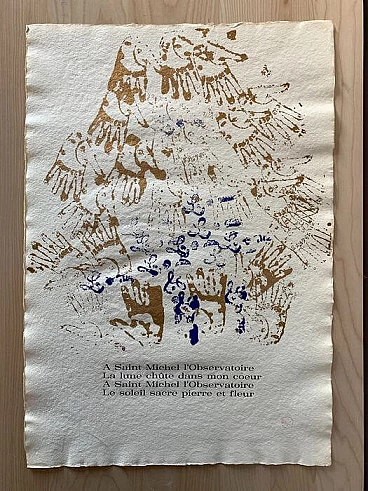 A Saint Michel l'Observatoire
La lune chûte dans mon coeur
A Saint Michel l'Observatoire
Le soleil sacre pierre et fleur